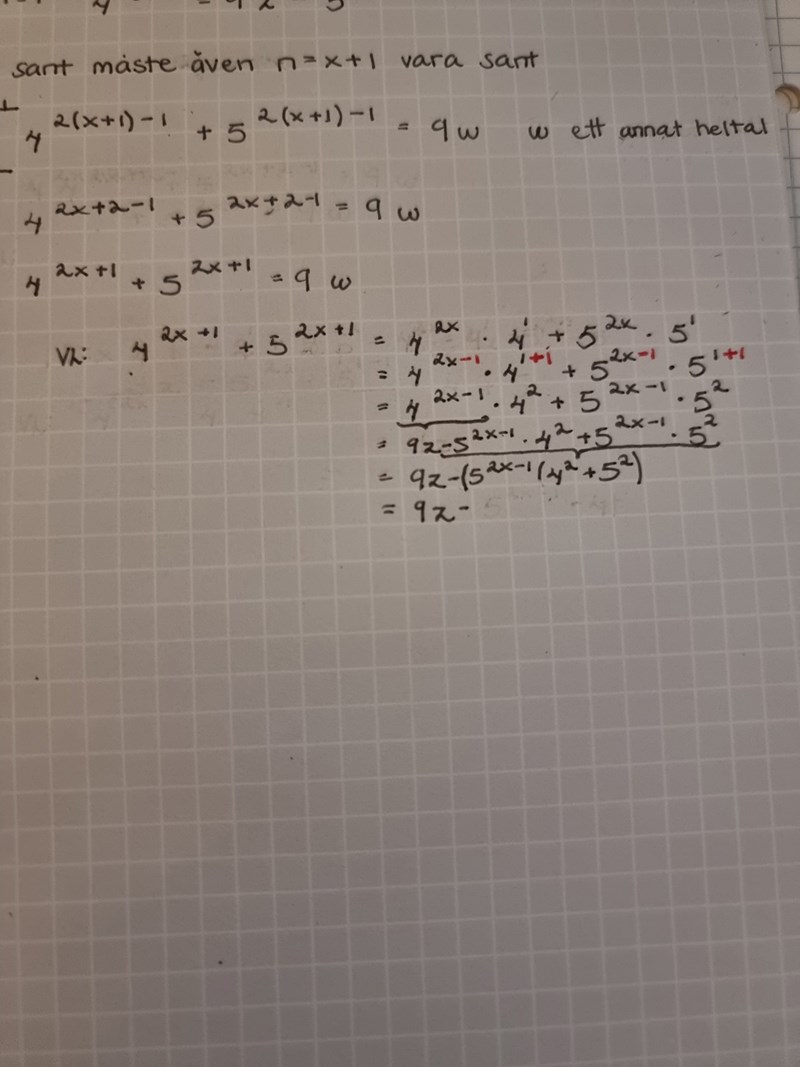 sant måste även n = x+1 vara sant
4^{2(x+1)-1} + 5^{2(x+1)-1} = 9w w ett annat heltal
4^{2x+2-1} + 5^{2x+2-1} = 9w
4^{2x+1} + 5^{2x+1} = 9w
VL: 4^{2x+1} + 5^{2x+1} = 4^{2x} · 4^1 + 5^{2x} · 5^1
= 4^{2x-1} · 4^{1+1} + 5^{2x-1} · 5^{1+1}
= 4^{2x-1} · 4^2 + 5^{2x-1} · 5^2
= 9z-5^{2x-1} · 4^2 + 5^{2x-1} · 5^2
= 9z-(5^{2x-1}(4^2+5^2)
= 9z-